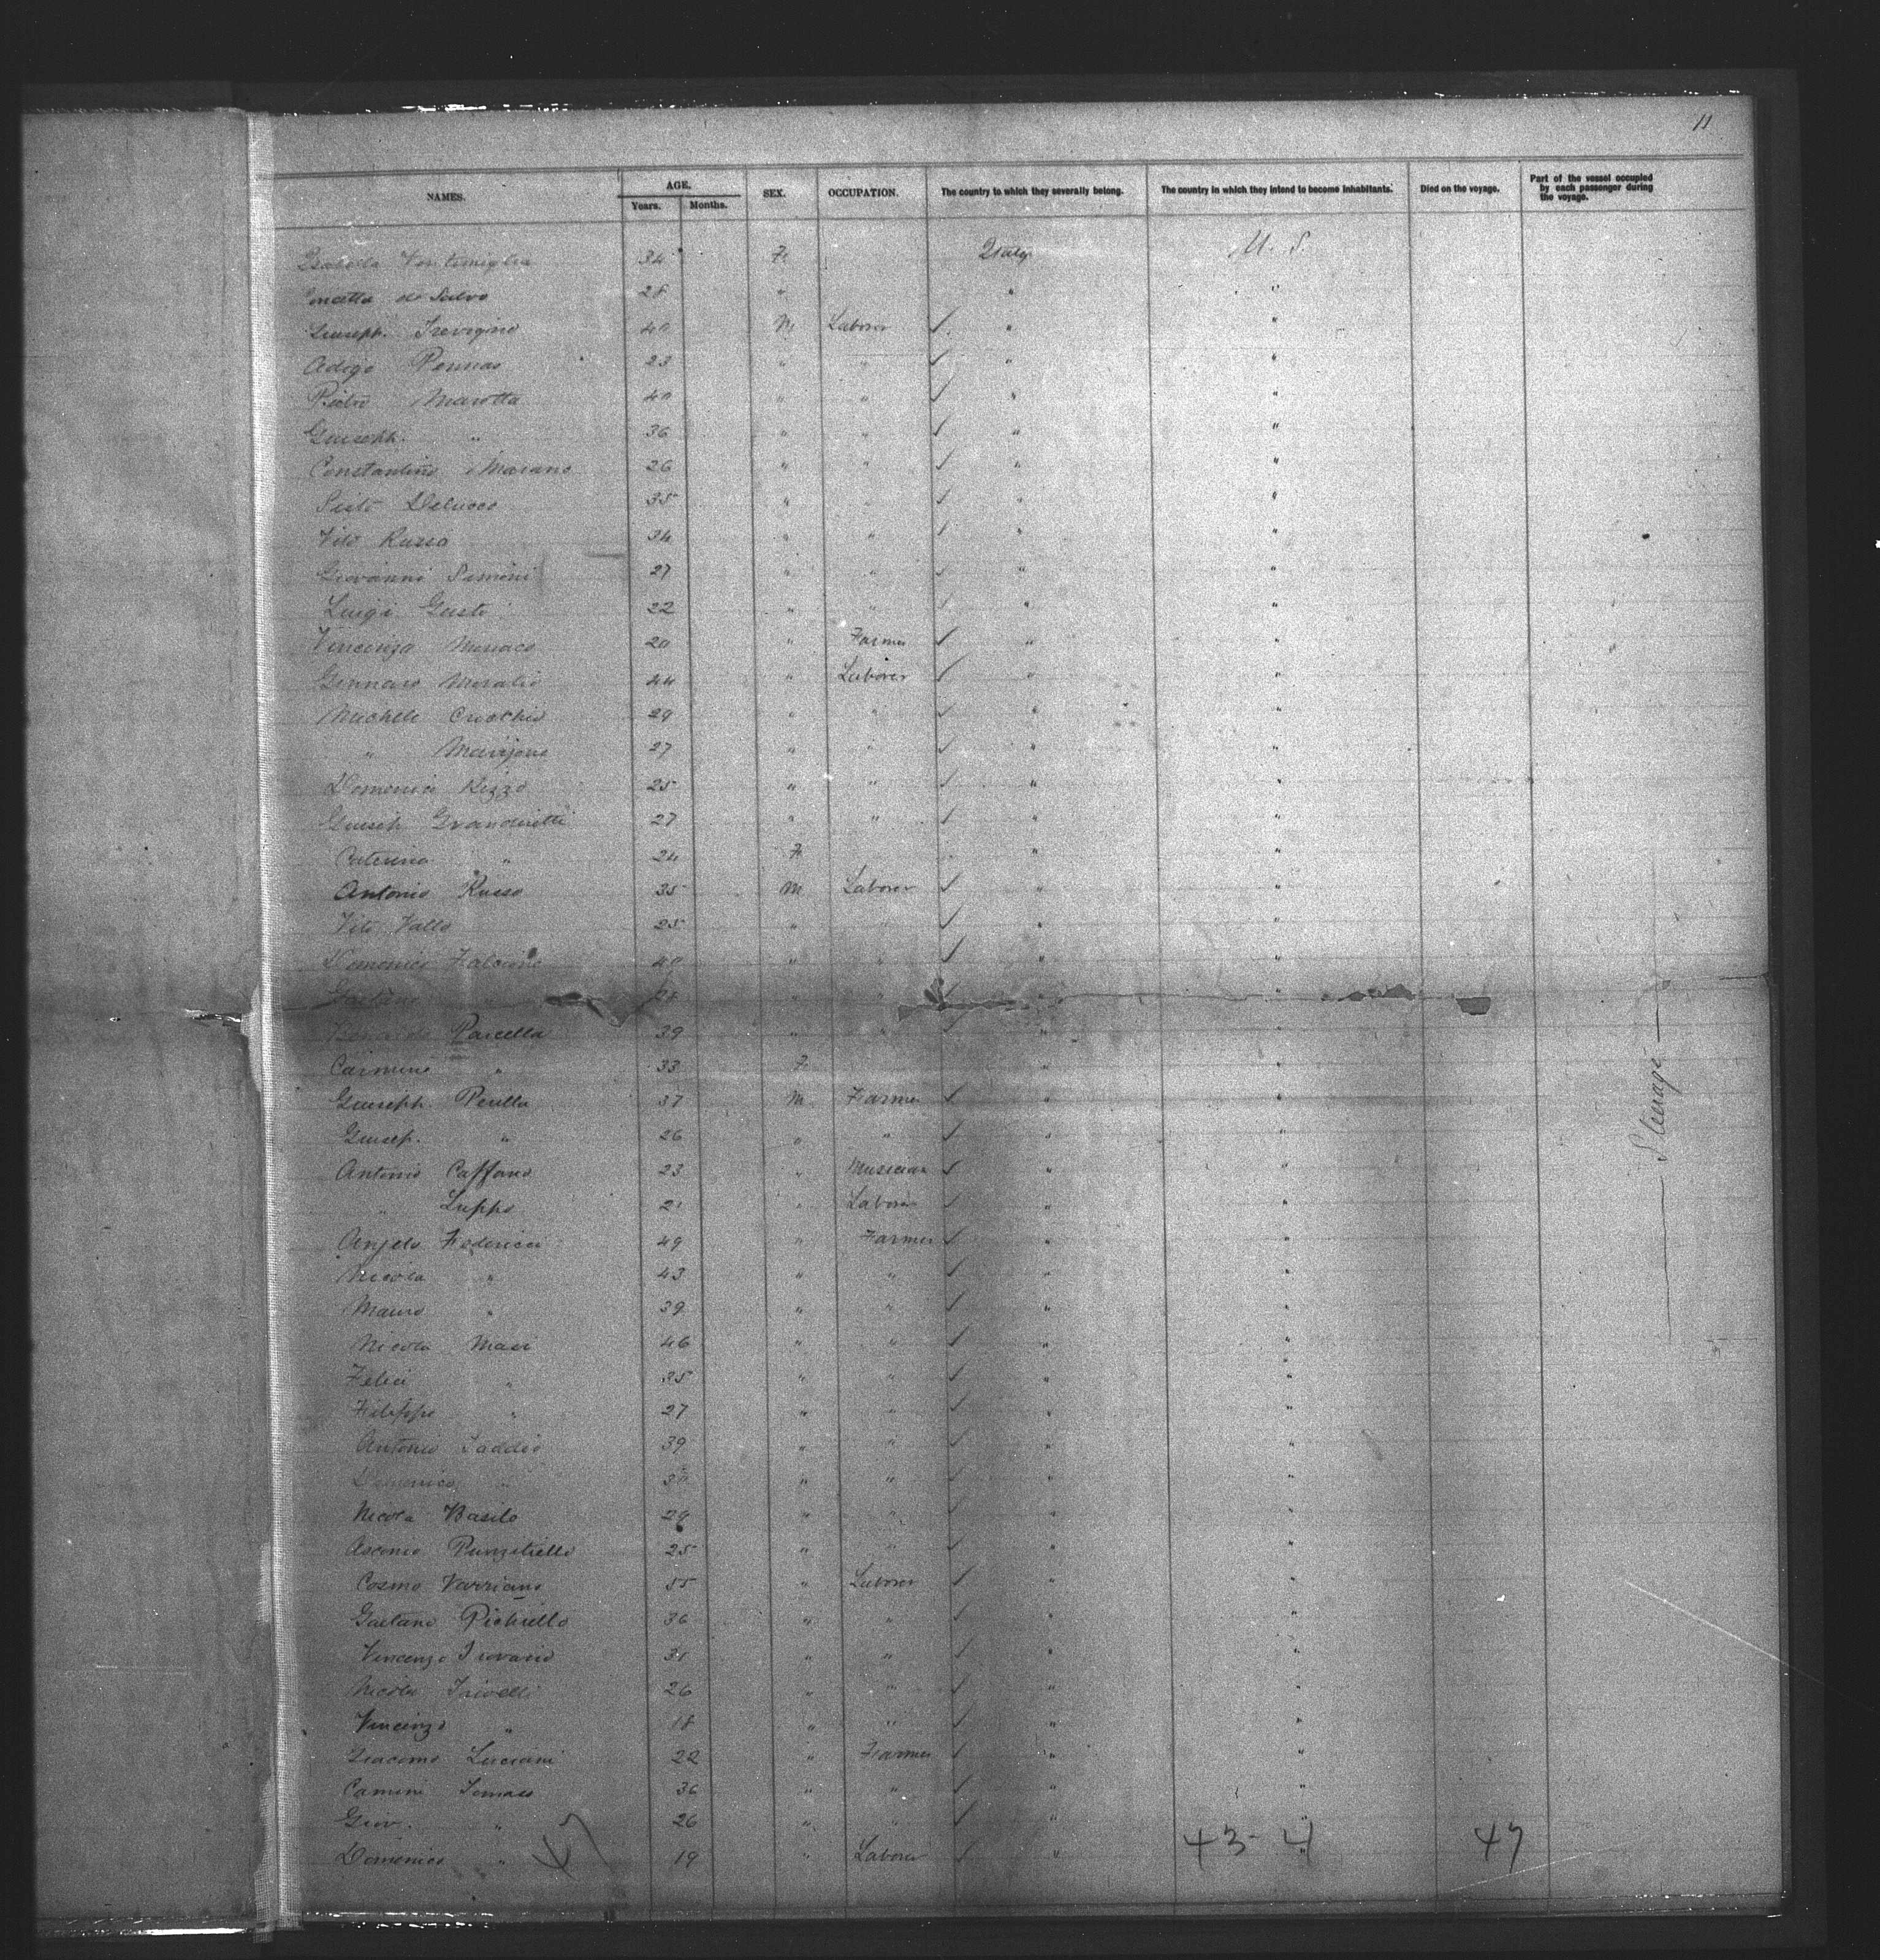 11
NAMES. AGE. SEX. OCCUPATION. The country to which they severally belong. The country in which they intend to become inhabitants. Died on the voyage. Part of the vessel occupied by each passenger during the voyage.
Years. Months.
Isabella Ventimiglia 34 F Italy U. S.
Concetta de Salvo 28 " " "
Giuseph. 40 M Laborer " "
Adigo 23 " " " "
Pietro Marotta 40 " " " "
Giuseph. " 36 " " " "
Constantino Marano 26 " " " "
Delucco 35 " " " "
Vito Russo 34 " " " "
Giovanni Simini 27 " " " "
Luigi Gusti 22 " " " "
Vincenzo Monaco 20 " Farmer " "
Gennaro 44 " Laborer " "
Michele 29 " " " "
" 27 " " " "
Domenico Rizzo 25 " " " "
Giuseph 27 " " " "
Caterina " 24 F " "
Antonio Russo 35 M Laborer " "
Vito Vallo 25 " " " "
Domenico Falcone 40 " " " "
Gaetano " 28 " " " "
Parcella 39 " " " "
Carmine " 33 F " "
Giuseph. Perilla 37 M Farmer " "
Giusep. " 26 " " " "
Antonio Caffano 23 " Musician " "
" Luppo 21 " Laborer " "
Angelo Federicci 49 " Farmer " "
Nicola " 43 " " " "
Mauro " 39 " " " "
Nicola Masi 46 " " " "
Felici " 35 " " " "
Filippo " 27 " " " "
Antonio Taddeo 39 " " " "
Domenico " 30 " " " "
Nicola Basilo 29 " " " "
Asconio Punzitiello 25 " " " "
Cosmo Varriano 55 " Laborer " "
Gaetano Pichiello 36 " " " "
Vincenzo 31 " " " "
Nicola Trivelli 26 " " " "
Vincenzo " 18 " " " "
Giacomo Luciani 22 " Farmer " "
Camini Tomaso 36 " " " "
Giov. " 26 " " " "
Domenico " 19 " Laborer " "
43-4 47
Steerage